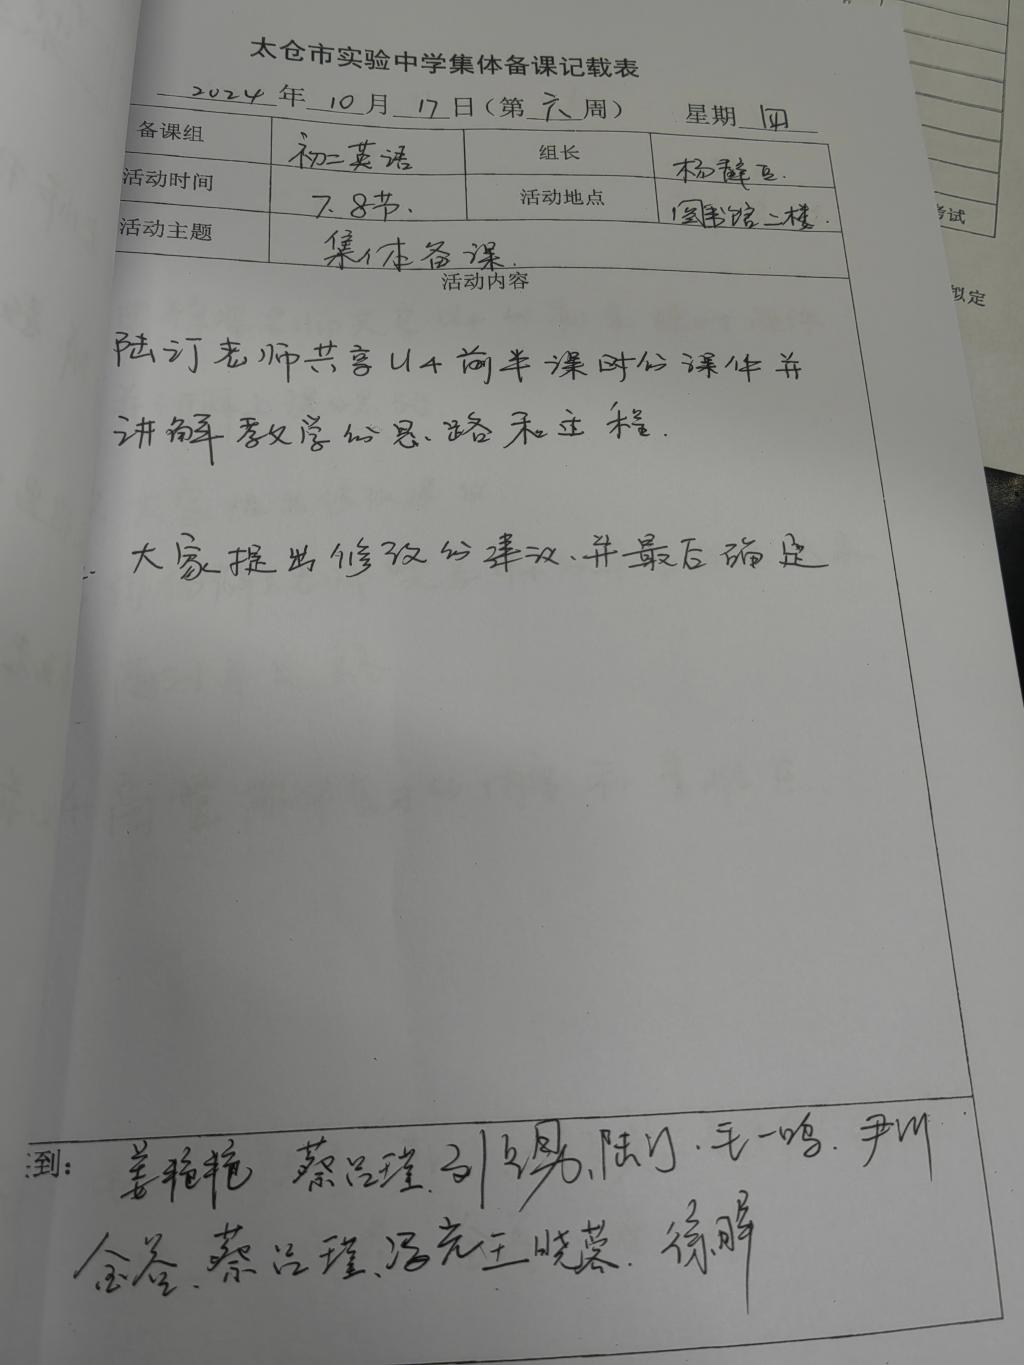 太仓市实验中学集体备课记载表
2024 年 10 月 17 日（第 六 周） 星期 四
备课组 初二英语 组长 杨
活动时间 7.8节. 活动地点 图书馆二楼.
活动主题 集体备课.
活动内容
陆汀老师共享U4前半课时的课件并
讲解教学的思路和过程.
大家提出修改的建议.并最后确定
到： 姜艳艳 蔡吕瑾、刘 陆汀.毛一鸣.尹川
金谷、蔡吕瑾、冯 王晓 . 徐
考试
拟定